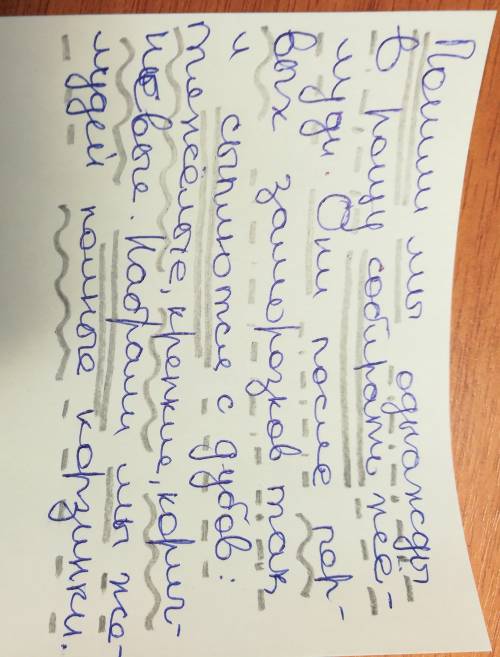 Пошли мы однажды
в рощу собирать жё-
луди. Они после пер-
вых заморозков так
и сыплются с дубов:
тяжёлые, крепкие, корич-
невые. Набрали мы жё-
лудей полные корзинки.